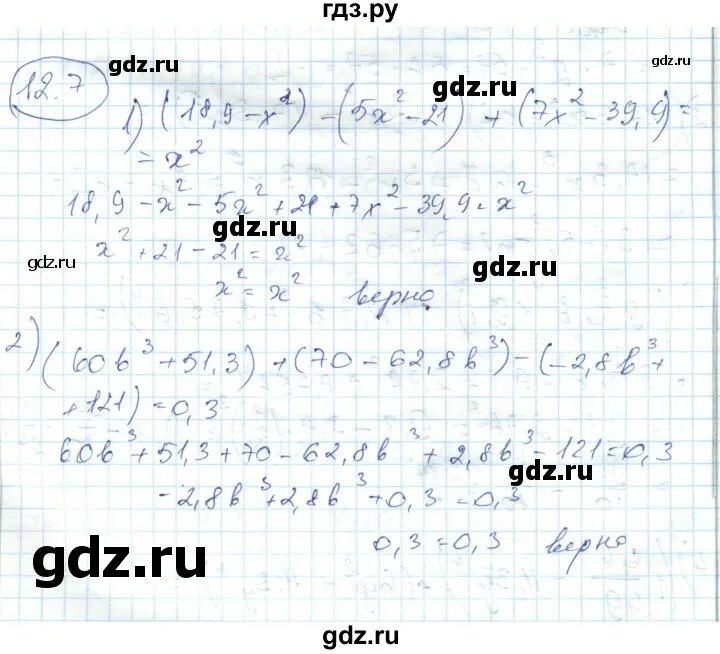 гдз.ру
12.7
gdz.ru
gdz.ru
gdz.ru
1) (18,9 - x²) - (5x² - 21) + (7x² - 39,9) =
= x²
18,9 - x² - 5x² + 21 + 7x² - 39,9 = x²
gdz.ru
x² + 21 - 21 = x²
gdz.ru
gdz.ru
x² = x² верно
2) (60b³ + 51,3) + (70 - 62,8b³) - (-2,8b³ +
+ 121) = 0,3
60b³ + 51,3 + 70 - 62,8b³ + 2,8b³ - 121 = 0,3
gdz.ru
-2,8b³ + 2,8b³ + 0,3 = 0,3
0,3 = 0,3 верно.
gdz.ru
gdz.ru
gdz.ru